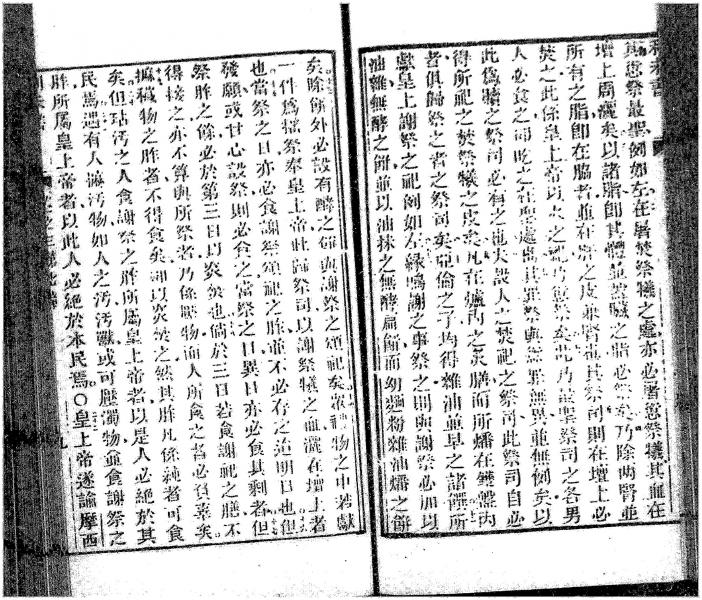 其愆祭最聖例如左在屠焚祭犧之處亦必屠愆祭犧其血在
壇上周灑矣以諸脂卽其體並蓋臟之脂必祭矣乃除兩腎並
所有之脂卽在脇者並在肝之皮兼腎也其祭司則在壇上必
焚之此係皇上帝以火之祀乃愆祭矣此乃最聖祭司之各男
人必食之而吃之在聖處也其罪祭與愆祭無異並無例矣以
此爲贖之祭司必有之也夫設人之焚祀之祭司此祭司自必
得所祀之焚祭犧之皮矣凡在爐內之炙膳而所燔在鍋盤內
者俱歸祭之者之祭司矣亞倫之子均得雜油並旱之諸饌所
獻皇上謝祭之祀例如左緣鳴謝之事祭之則與謝祭必加以
油雜無酵之餅並以油抹之無酵扁餅而幼麵粉雜油燔之餅
矣除餅外必設有酵之餅與謝祭之頌祀矣凡禮物之中若獻
一件爲搖祭奉皇上帝此歸祭司以謝祭犧之血灑在壇上者
也當祭之日亦必食謝祭頌祀之胙並不必存之迨明日也但
發願或甘心設祭則必食之當祭之日異日亦必食其剩者但
祭胙之餘必於第三日以炎焚也倘於三日若食謝祀之膳不
得接之亦不算與所祭者乃係賤物而人所食之者必負辜矣
摭穢物之胙者不得食矣卽以炎焚之然其胙凡係純者可食
矣但玷汚之人食謝祭之胙所屬皇上帝者以是人必絕於其
民焉遇有人摭汚物如人之汚汚獸或可壓濁物並食謝祭之
胙所屬皇上帝者以此人必絕於本民焉○皇上帝遂諭摩西